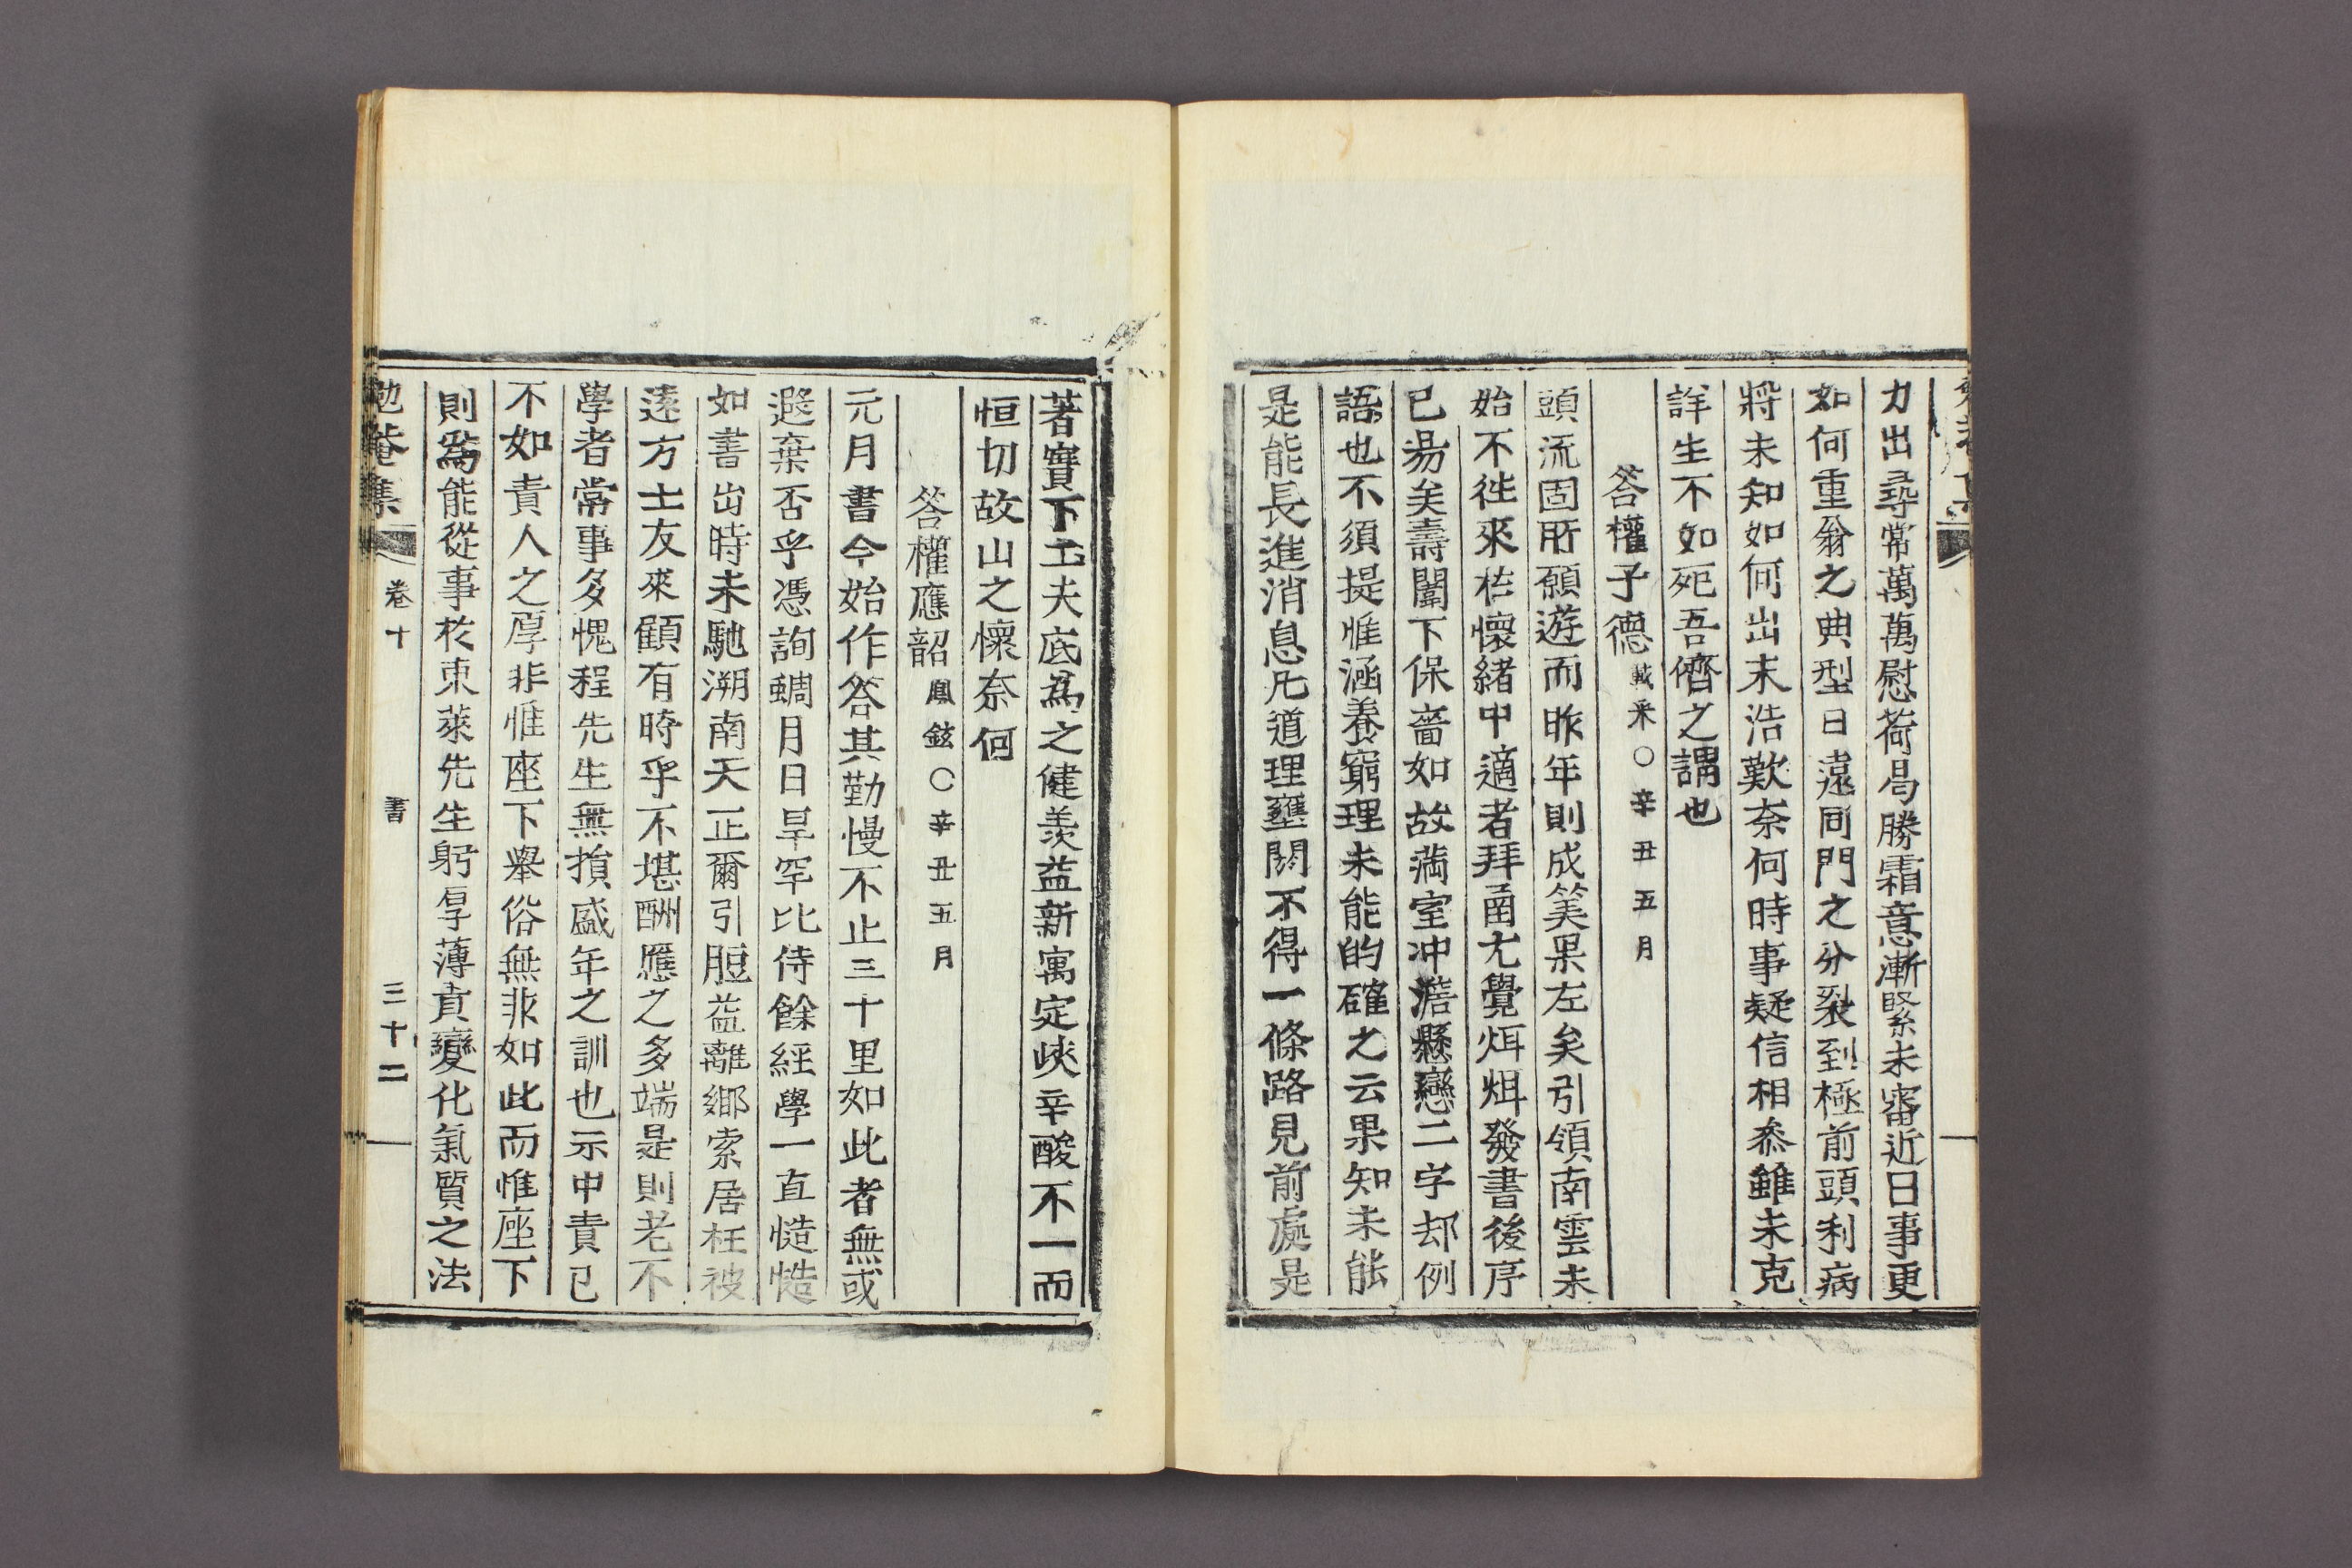 力出尋常萬萬慰荷曷勝霜意漸緊未審近日事更
如何重翁之典型日遠同門之分裂到極前頭利病
將未知如何出末浩歎奈何時事疑信相叅雖未克
詳生不如死吾儕之謂也
答權子德 載采○辛丑五月
頭流固所願遊而昨年則成笑果左矣引領南雲未
始不徃來在懷緖中適者拜圅尤覺炯炯發書後序
已易矣壽闈下保嗇如故滿室冲澔懸戀二字却例
語也不須提惟涵養窮理未能的確之云果知未能
是能長進消息凡道理壅閼不得一條路見前處是
著實下工夫底爲之健羨益新寓定峽辛酸不一而
恒切故山之懷奈何
答權應韶 鳳鉉○辛丑五月
元月書今始作答其勤慢不止三十里如此者無或
遐棄否乎憑詢蜩月日旱罕比侍餘經學一直慥慥
如書出時未馳溯南天正爾引脰益離鄕索居枉被
遠方士友來顧有時乎不堪酬應之多端是則老不
學者常事多愧程先生無損盛年之訓也示中責己
不如責人之厚非惟座下擧俗無非如此而惟座下
則爲能從事於東萊先生躬厚薄責變化氣質之法
勉菴集 卷十 書 三十二